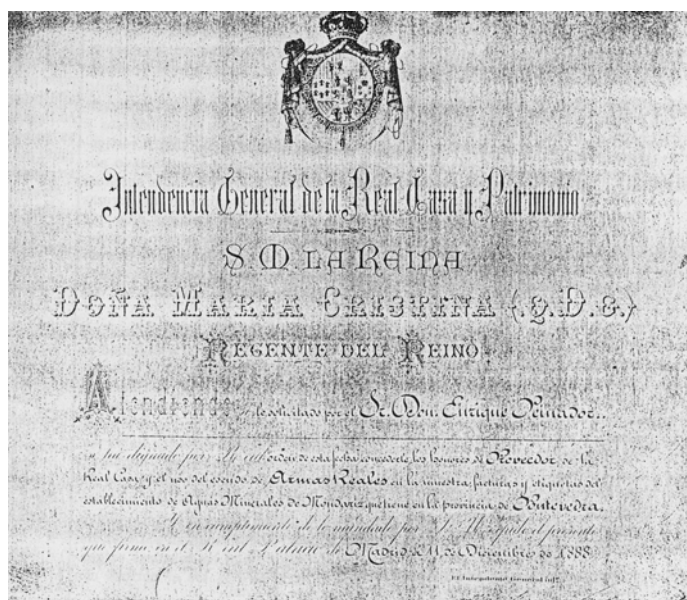 Intendencia General de la Real Casa y Patrimonio
S. M. LA REINA
DOÑA MARIA CRISTINA (.Q.D.G.)
REGENTE DEL REINO
Atendiendo a lo solicitado por el Sr. Don Enrique Peinador..
se ha dignado por Real orden de esta fecha concederle los honores de Proveedor de la
Real Casa, y el uso del escudo de Armas Reales en la muestra, facturas y etiquetas del
establecimiento de Aguas Minerales de Mondariz que tiene en la provincia de Pontevedra.
Y en cumplimiento de lo mandado por S. M. expido el presente
que firmo en el Real Palacio de Madrid a 11 de Diciembre de 1888
El Intendente General